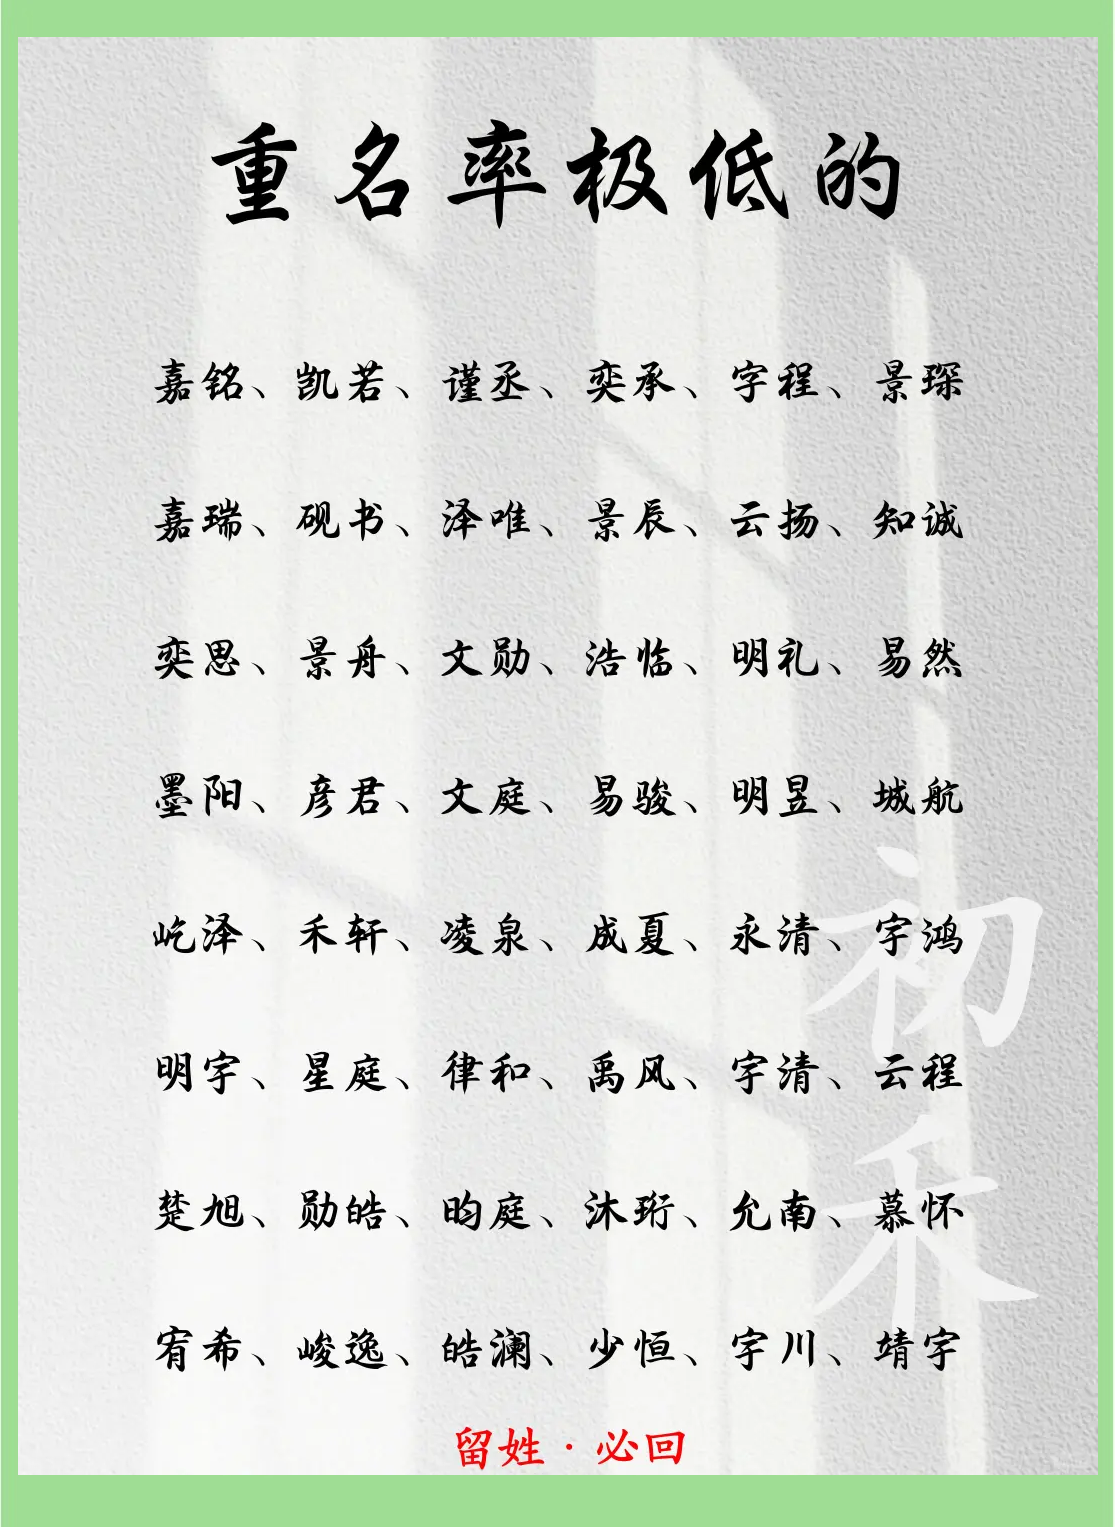 重名率极低的
嘉铭、凯若、谨丞、奕承、字程、景琛
嘉瑞、砚书、泽唯、景辰、云扬、知诚
奕思、景舟、文勋、浩临、明礼、易然
墨阳、彦君、文庭、易骏、明昱、城航
屹泽、禾轩、凌泉、成夏、永清、宇鸿
明宇、星庭、律和、禹风、宇清、云程
楚旭、勋皓、昀庭、沐珩、允南、慕怀
宥希、峻逸、皓澜、少恒、宇川、靖宇
初禾
留姓·必回